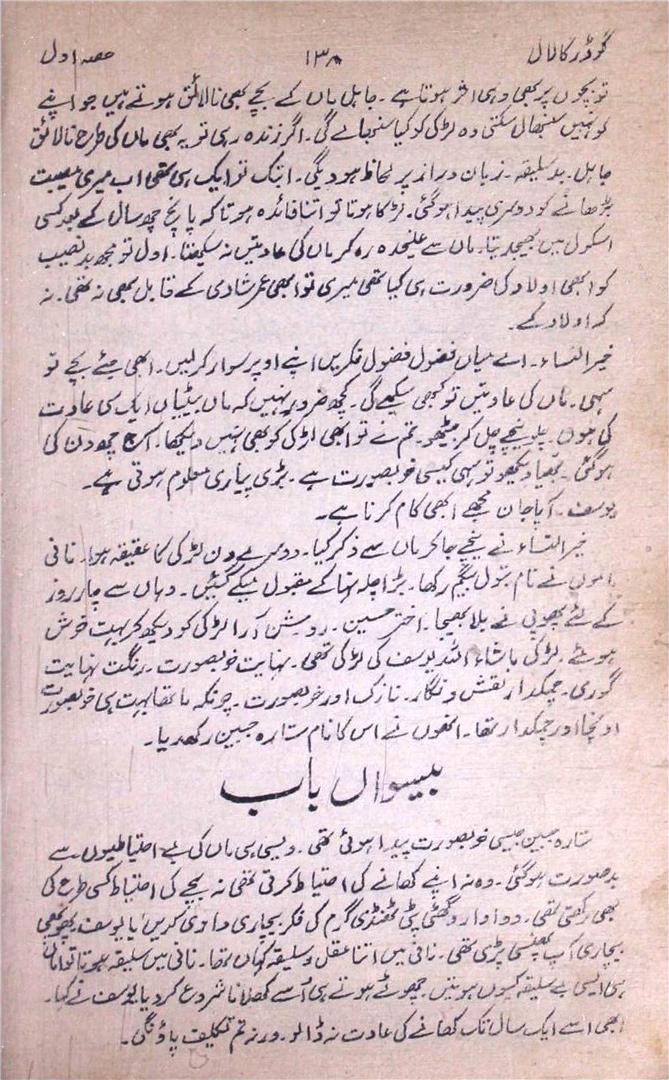 گوڈر کا لال ۱۳۸ حصہ اول
تو بچوں پر بھی وہی اثر ہوتا ہے ۔ جاہل ماں کے بچے بھی نالائق ہوتے ہیں جو اپنے
کو نہیں سنبھال سکتی وہ لڑکی کو کیا سنبھالے گی ۔ اگر زندہ رہی تو یہ بھی ماں کی طرح نالائق
جاہل ۔ بد سلیقہ ۔ زبان دراز پر لحاظ ہو ویگی ۔ ابتک تو ایک ہی تھی اب میری مصیبت
بڑھانے کو دوسری پیدا ہو گئی ۔ لڑکا ہوتا تو اتنا فائدہ ہوتا کہ پانچ چھ سال کے بعد کسی
اسکول میں بھیجدیتا ۔ ماں سے علیحدہ رہ کر ماں کی عادتیں نہ سیکھتا ۔ اول تو مجھ بد نصیب
کو ابھی اولاد کی ضرورت ہی کیا تھی میری تو ابھی عمر شادی کے قابل بھی نہ تھی ۔ نہ
کہ اولاد کے ۔
خیر النساء ۔ اے میاں فضول فضول فکریں اپنے اوپر سوار کر لیں ۔ ابھی جئے بچے تو
سہی ۔ ماں کی عادتیں تو کبھی سیکھے گی ۔ کچھ ضرور نہیں کہ ماں بیٹیاں ایک سی عادت
کی ہوں ۔ چلو نیچے چل کر بیٹھو ۔ تم نے تو ابھی لڑکی کو بھی نہیں دیکھا ۔ آج چھ دن کی
ہو گئی ۔ دیکھو تو سہی کیسی خوبصورت ہے ۔ بڑی پیاری معلوم ہوتی ہے ۔
یوسف ۔ آپا جان مجھے ابھی کام کرنا ہے ۔
خیر النساء نے نیچے جا کر ماں سے ذکر کیا ۔ دوسرے دن لڑکی کا عقیقہ ہوا ۔ نانی
ماموں نے نام بتول بیگم رکھا ۔ بڑا چلہ نہا کے مقبول میکے گئیں ۔ وہاں سے چار روز
کے لئے پھوپی نے بلا بھیجا ۔ اختر حسین ۔ روشن آرا لڑکی کو دیکھ کر بہت خوش
ہوئے ۔ لڑکی ماشاء اللہ یوسف کی لڑکی تھی ۔ نہایت خوبصورت ۔ رنگت نہایت
گوری ۔ چمکدار نقش و نگار ۔ نازک اور خوبصورت ۔ چونکہ ماتھا بہت ہی خوبصورت
اونچا اور چمکدار تھا ۔ انھوں نے اس کا نام ستارہ جبین رکھدیا ۔
بیسواں باب
ستارہ جبین جیسی خوبصورت پیدا ہوئی تھی ۔ ویسی ہی ماں کی بے احتیاطیوں سے
بدصورت ہو گئی ۔ وہ نہ اپنے کھانے کی احتیاط کرتی تھی نہ بچے کی احتیاط کسی طرح کی
بھی رکھتی تھی ۔ دوا دارو گھٹی پٹی ٹھنڈی گرم کی فکر بچاری دادی کریں یا یوسف پھوپھی
بیچاری آپ پھنسی پڑی تھی ۔ نانی میں اتنا عقل و سلیقہ کہاں تھا ۔ نانی میں سلیقہ ہوتا تو اماں
ہی ایسی بے سلیقہ کیوں ہوتیں ۔ چھوٹے ہوتے ہی اسے کھلانا شروع کر دیا یوسف نے کہا ۔
ابھی اسے ایک سال تک کھانے کی عادت نہ ڈالو ۔ ورنہ تم تکلیف پاؤ گی ۔